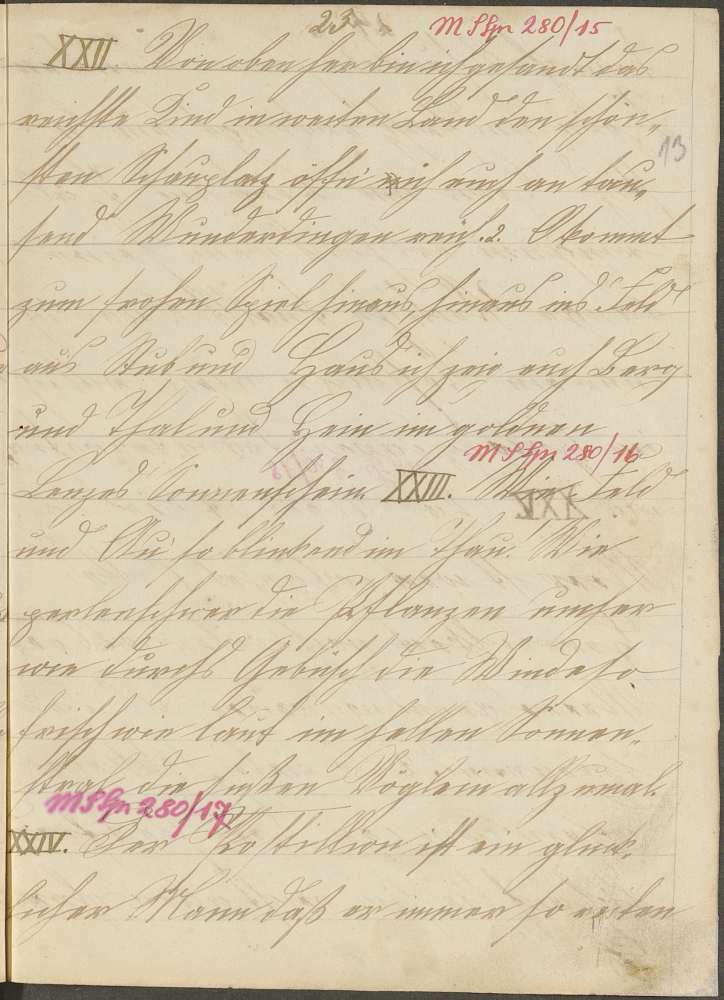 23
MS Hn 280/15
XXII. Von oben her bin ich gesandt das
13
reichste Kind in weiten Land den schön„
sten Schauplatz öffn ich euch an tau„
send Wunderdingen reich. 2. O kommt
zum frohen Spiel hinaus, hinaus ins Feld
aus Stub und Haus ich zeig euch Berg
und Thal und Hein im goldnen
MS Hn 280/16
Lenzes Sonnenschein. XXIII. Wie Feld
und Au' so blinkend im Thau! Wie
perlenschwer die Pflanzen umher
wie durchs Gebüsch die Winde so
frisch wie laut im hellen Sonnen„
stral die süßen Vöglein allzumal.
MS Hn 280/17
XXIV. Der Postillion ist ein glück„
licher Mann daß er immer so reiten